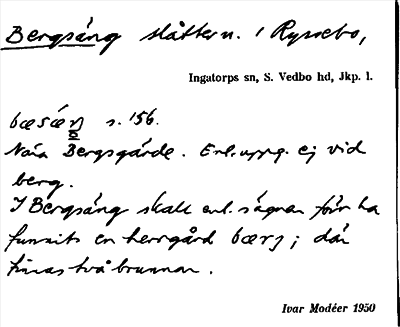 Bergsäng slåttern. i Ryssebo,
Ingatorps sn, S. Vedbo hd, Jkp. l.
s. 156.
Nära Bergsgärde. Enl. uppg. ej vid
berg.
I Bergsäng skall enl. sägnen förr ha
funnits en herrgård bærj; där
finns två brunnar.
Ivar Modéer 1950